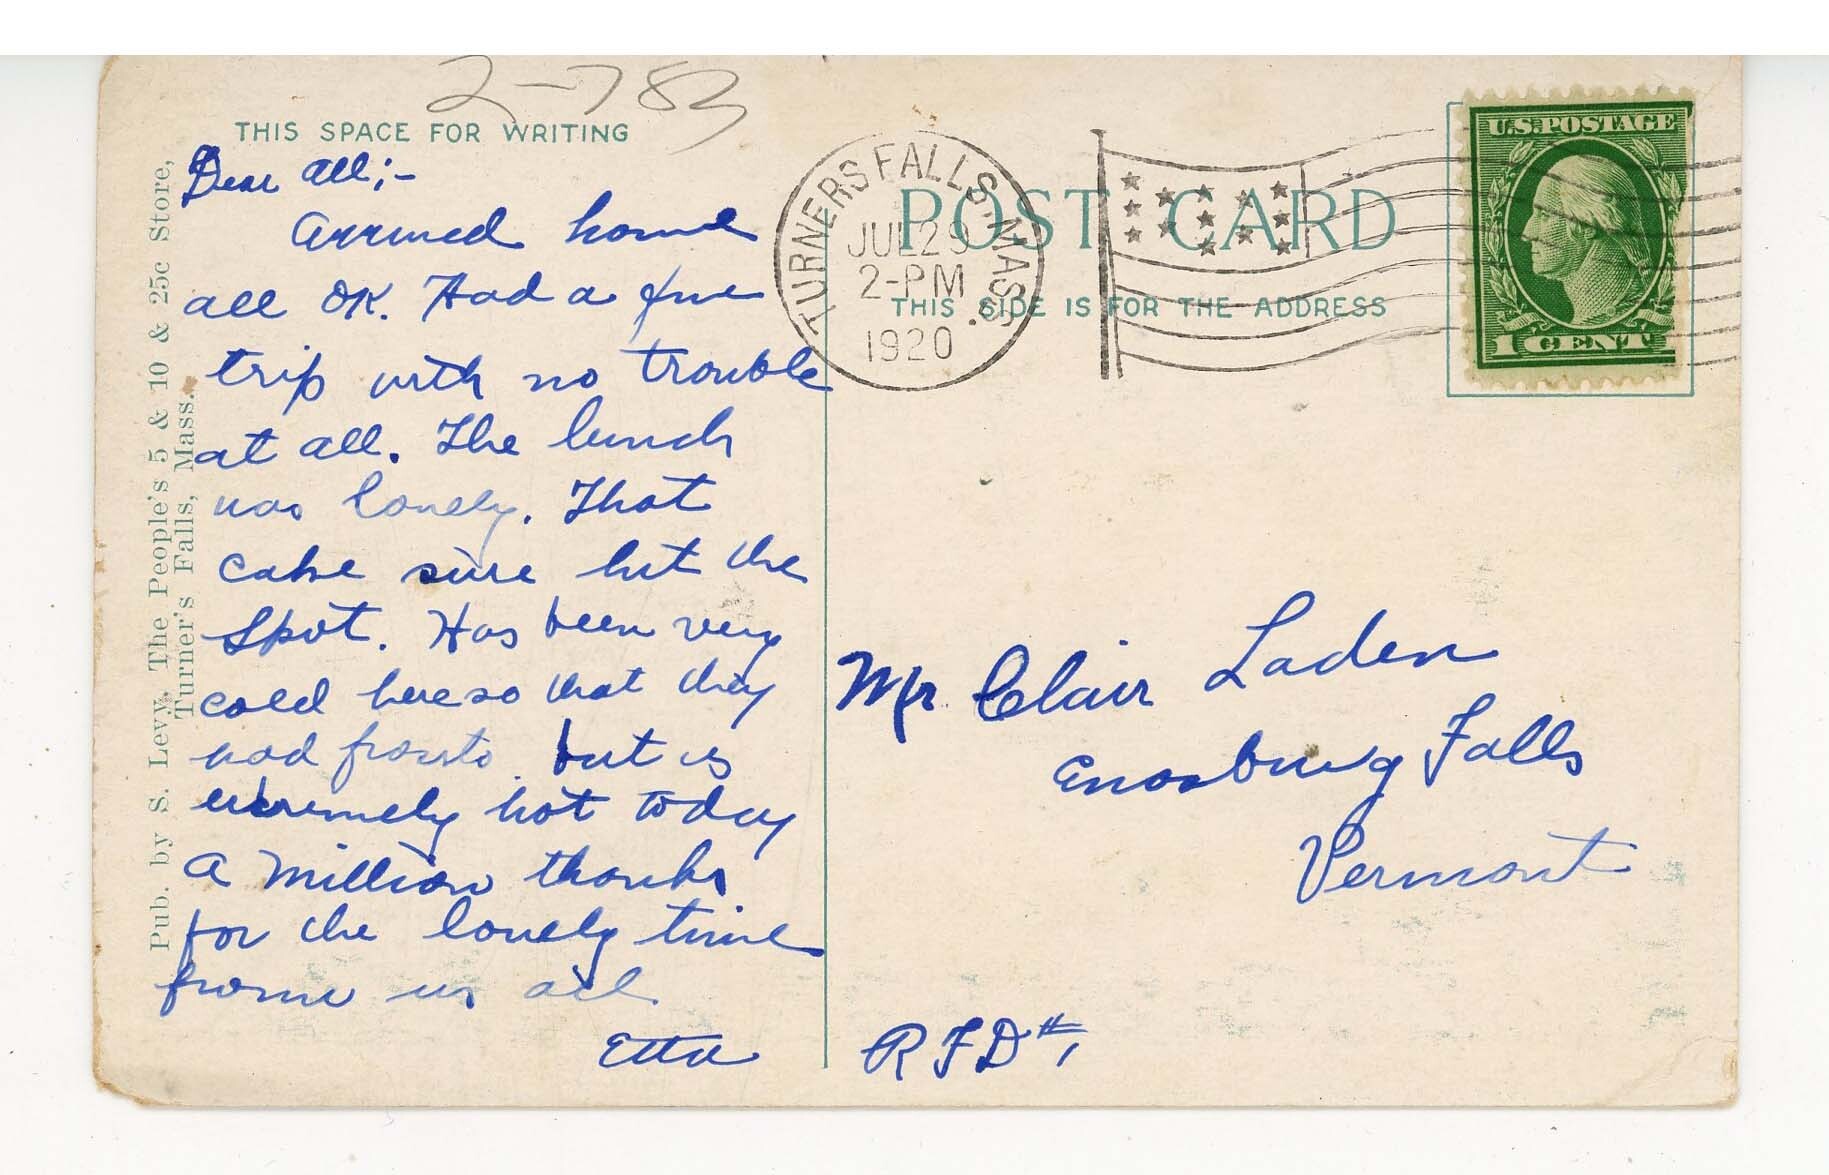 2-783
THIS SPACE FOR WRITING
Dear all;-
Arrived home
all OK. Had a fine
trip with no trouble
at all. The lunch
was lovely. That
cake sure hit the
spot. Has been very
cold here so that they
had frosts but is
extremely hot today
A million thanks
for the lovely time
from us all.
Etta
Pub. by S. Levy, The People's 5 & 10 & 25c Store,
Turner's Falls, Mass.
TURNERS FALLS, MASS.
JUL 29
2-PM
1920
POST CARD
THIS SIDE IS FOR THE ADDRESS
U.S. POSTAGE
1 CENT 1
Mr Clair Laden
Enosburg Falls
Vermont
RFD #1